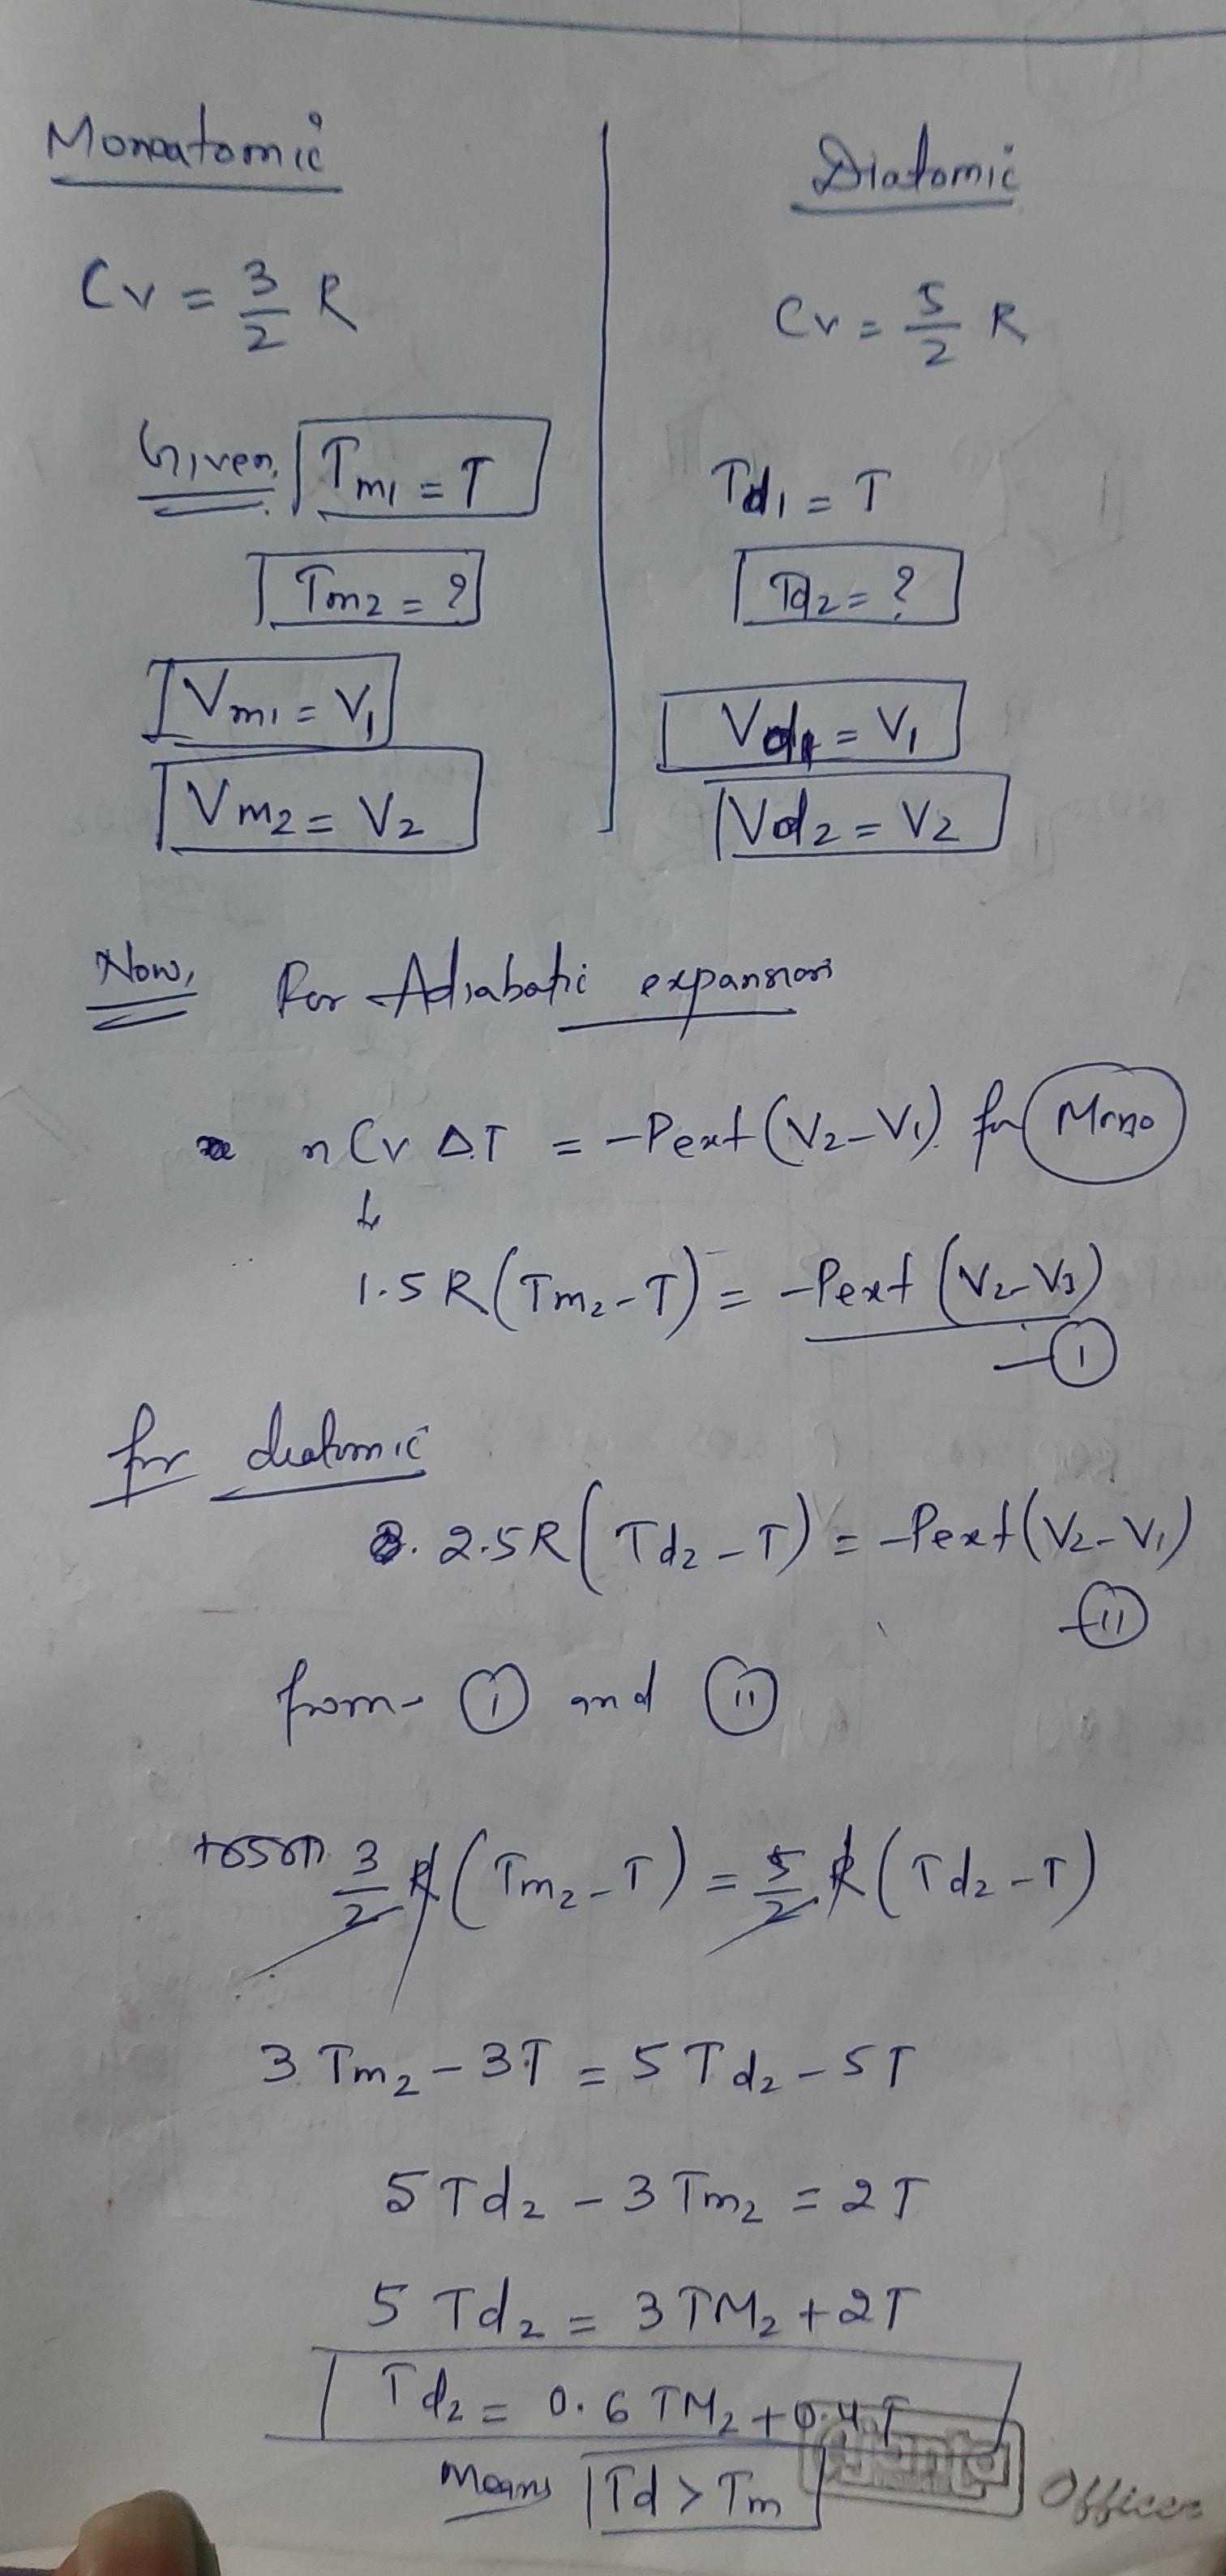 Monoatomic
Cv = 3/2 R
Given, Tm1 = T
Tm2 = ?
Vm1 = V1
Vm2 = V2
Diatomic
Cv = 5/2 R
Td1 = T
Td2 = ?
Vd1 = V1
Vd2 = V2
Now, for Adiabatic expansion
n Cv ΔT = -Pext (V2-V1) for Mono
1.5 R (Tm2-T) = -Pext (V2-V1)
-(i)
for diatomic
2.5R (Td2-T) = -Pext (V2-V1)
-(ii)
from - (i) and (ii)
3/2 R (Tm2-T) = 5/2 R (Td2-T)
3 Tm2 - 3T = 5 Td2 - 5T
5 Td2 - 3 Tm2 = 2T
5 Td2 = 3 TM2 + 2T
Td2 = 0.6 TM2 + 0.4T
means Td > Tm
Officer